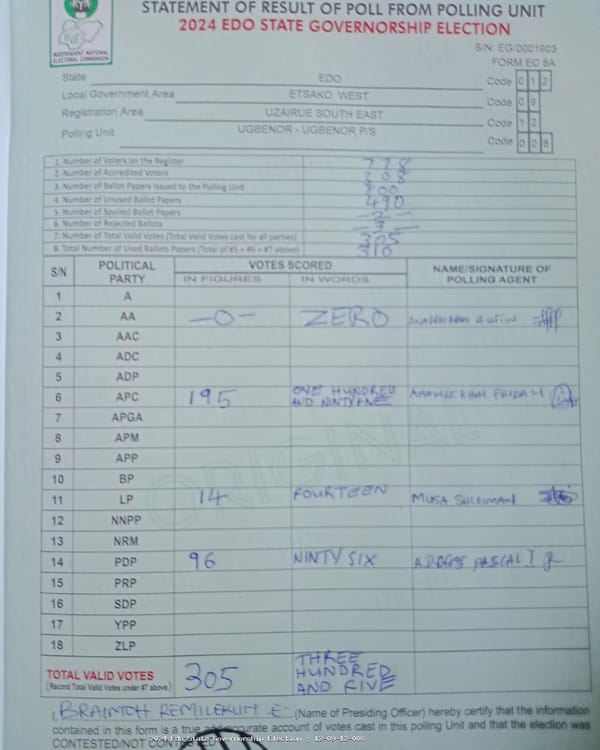 STATEMENT OF RESULT OF POLL FROM POLLING UNIT
2024 EDO STATE GOVERNORSHIP ELECTION
INEC
INDEPENDENT NATIONAL ELECTORAL COMMISSION
S/N: EG/0001903
FORM EC 8A
State EDO Code 0 1 2
Local Government Area ETSAKO WEST Code 0 9
Registration Area UZAIRUE SOUTH EAST Code 1 2
Polling Unit UGBENOR - UGBENOR P/S Code 0 0 8
1. Number of Voters on the Register 778
2. Number of Accredited Voters
3. Number of Ballot Papers Issued to the Polling Unit 800
4. Number of Unused Ballot Papers 490
5. Number of Spoiled Ballot Papers
6. Number of Rejected Ballots
7. Number of Total Valid Votes (Total Valid Votes cast for all parties) 305
8. Total Number of Used Ballots Papers (Total of #5 + #6 + #7 above) 310
S/N POLITICAL PARTY VOTES SCORED NAME/SIGNATURE OF POLLING AGENT
IN FIGURES IN WORDS
1 A
2 AA -0- ZERO
3 AAC
4 ADC
5 ADP
6 APC 195 ONE HUNDRED AND NINTY FIVE
7 APGA
8 APM
9 APP
10 BP
11 LP 14 FOURTEEN MUSA SULEIMAN
12 NNPP
13 NRM
14 PDP 96 NINTY SIX
15 PRP
16 SDP
17 YPP
18 ZLP
ORIGINAL
TOTAL VALID VOTES 305 THREE HUNDRED AND FIVE
(Record Total Valid Votes under #7 above)
I, REMILEKUN E. (Name of Presiding Officer) hereby certify that the information
contained in this form is a true and accurate account of votes cast in this polling Unit and that the election was
CONTESTED/NOT CONTESTED
2024 Edo State Governorship Election - 12-09-12-008